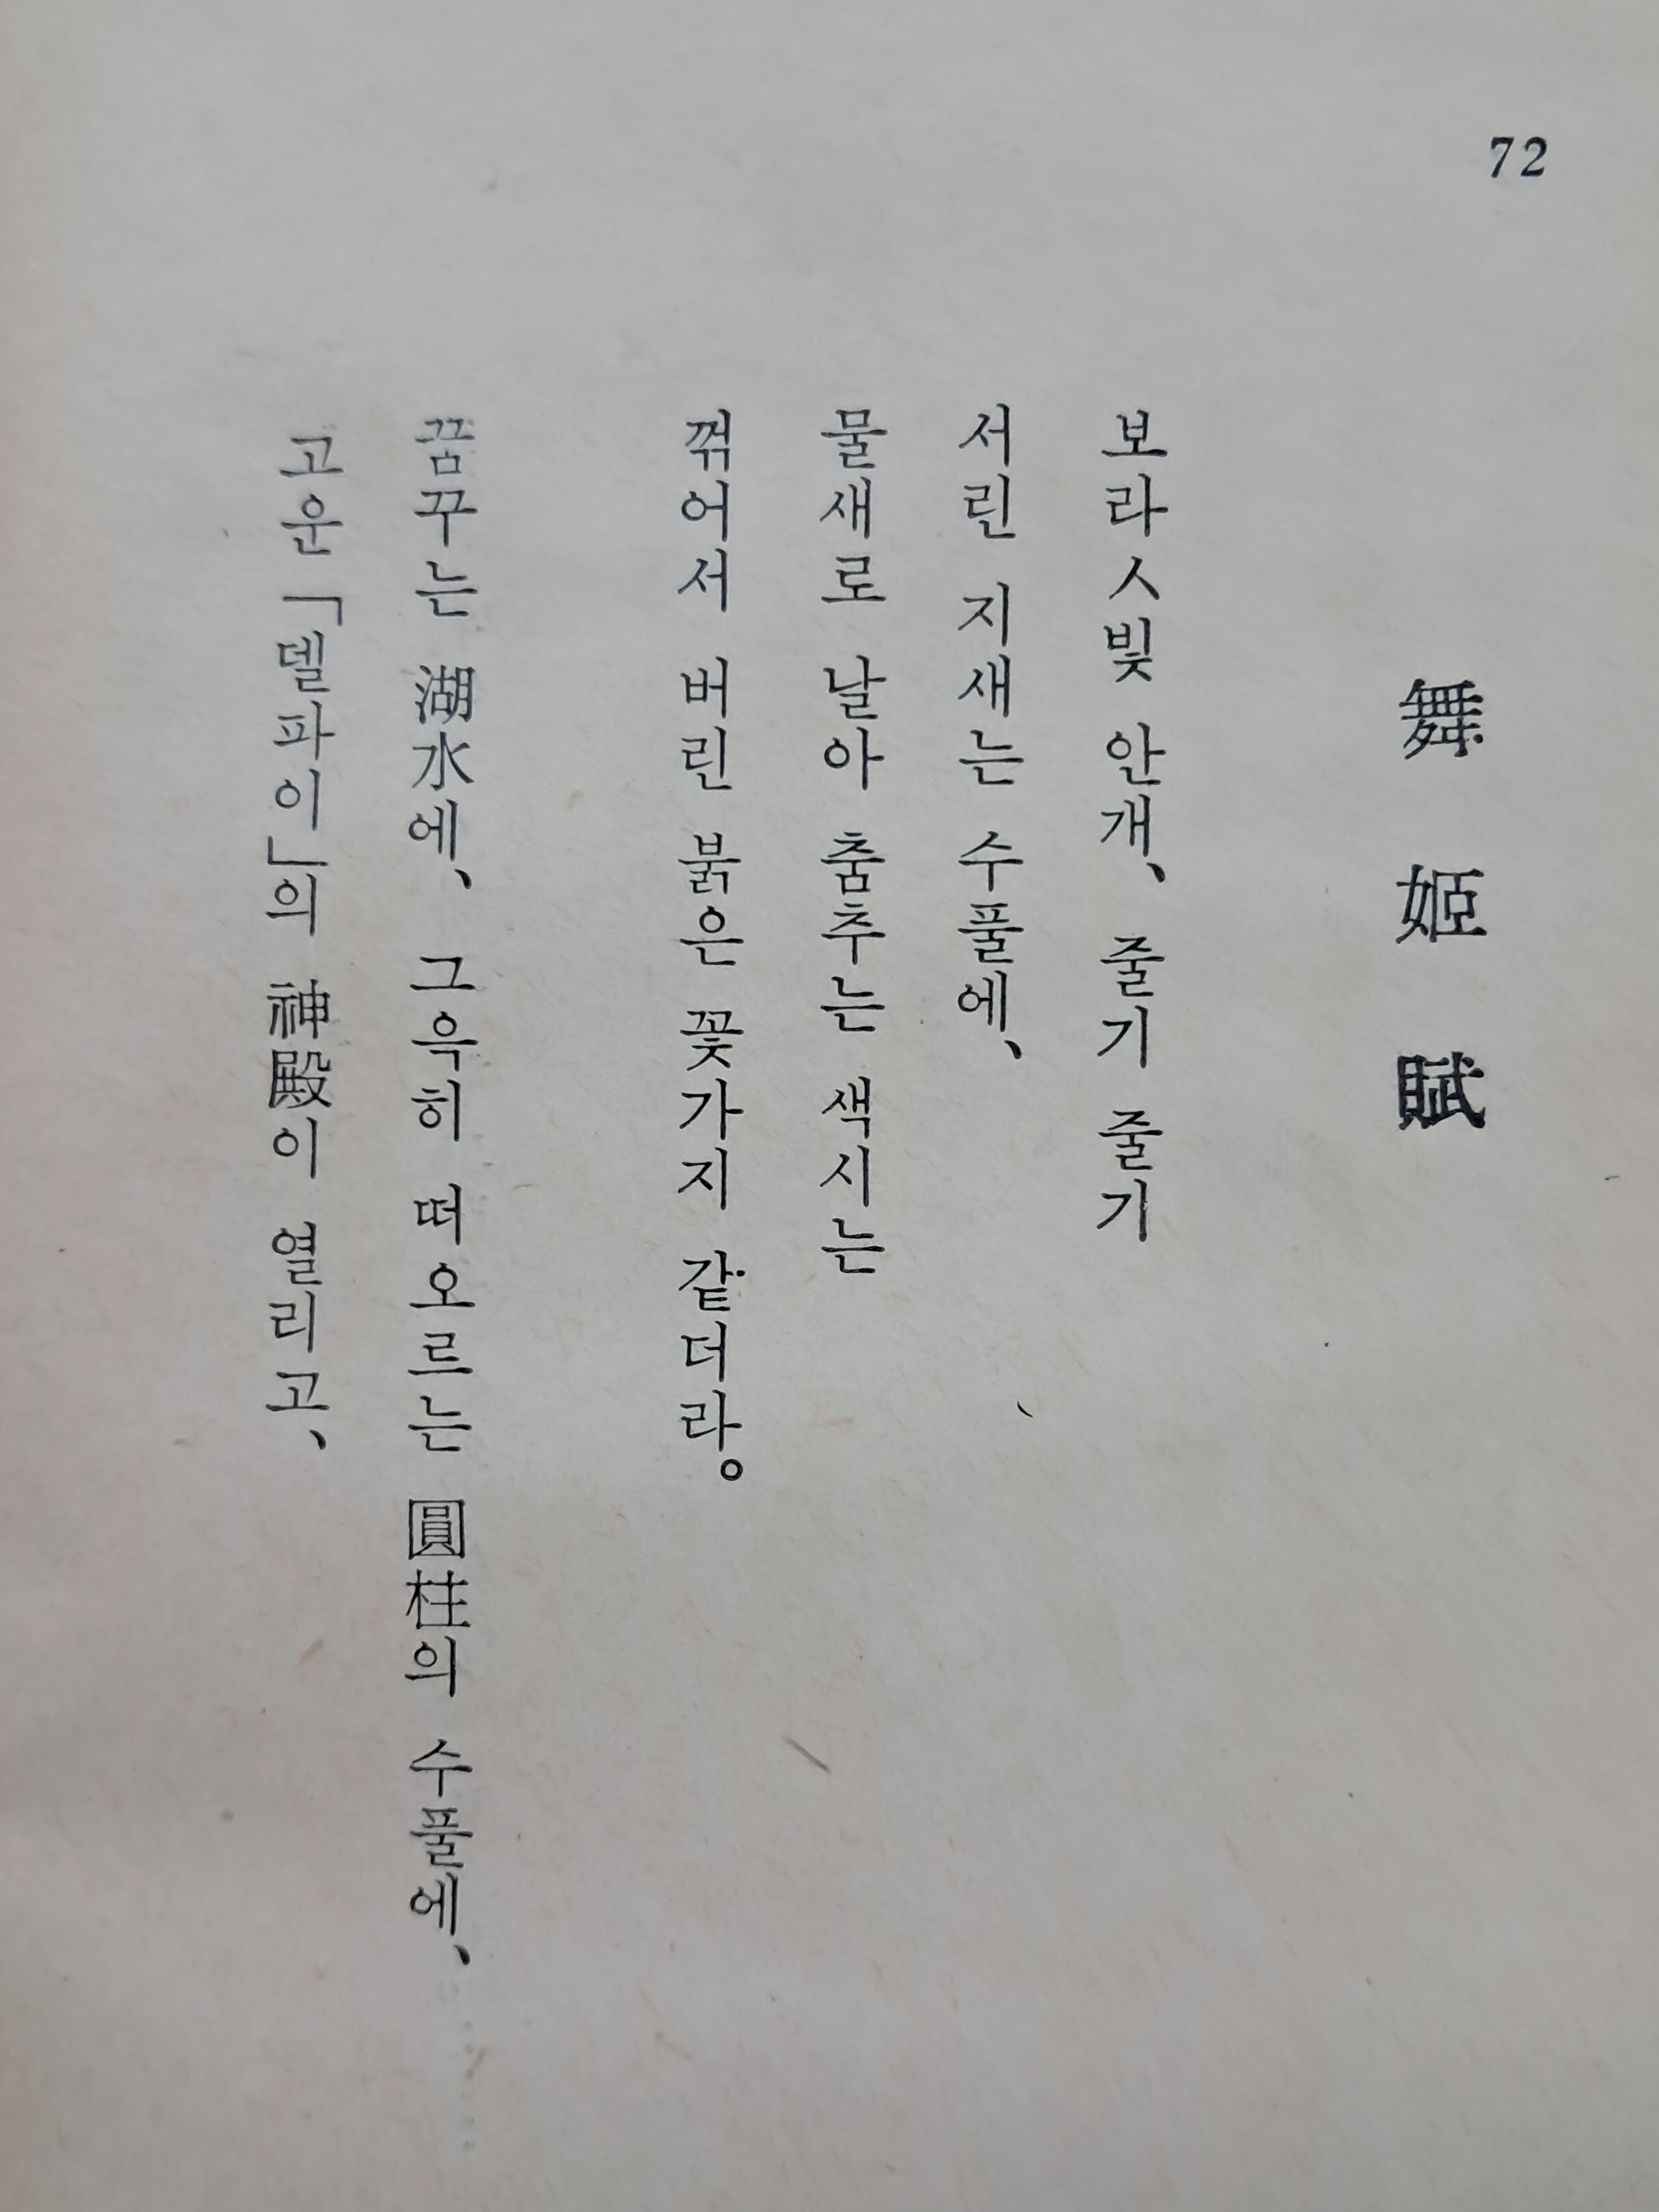 72
舞姬賦
보라ㅅ빛 안개、 줄기 줄기
서린 지새는 수풀에、
물새로 날아 춤추는 색시는
꺾어서 버린 붉은 꽃가지 같더라。
꿈꾸는 湖水에、 그윽히 떠오르는 圓柱의 수풀에、
고운 「델파이」의 神殿이 열리고、